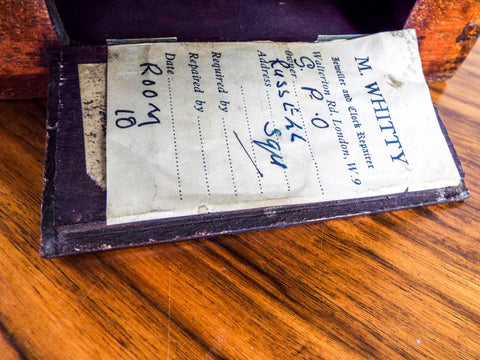 M. WHITTY
Jeweller and Clock Repairer
Walterton Rd, London, W.9
Owner G. P. O
Address RUSSELL SQU
Required by
Repaired by
Date
ROOM
18